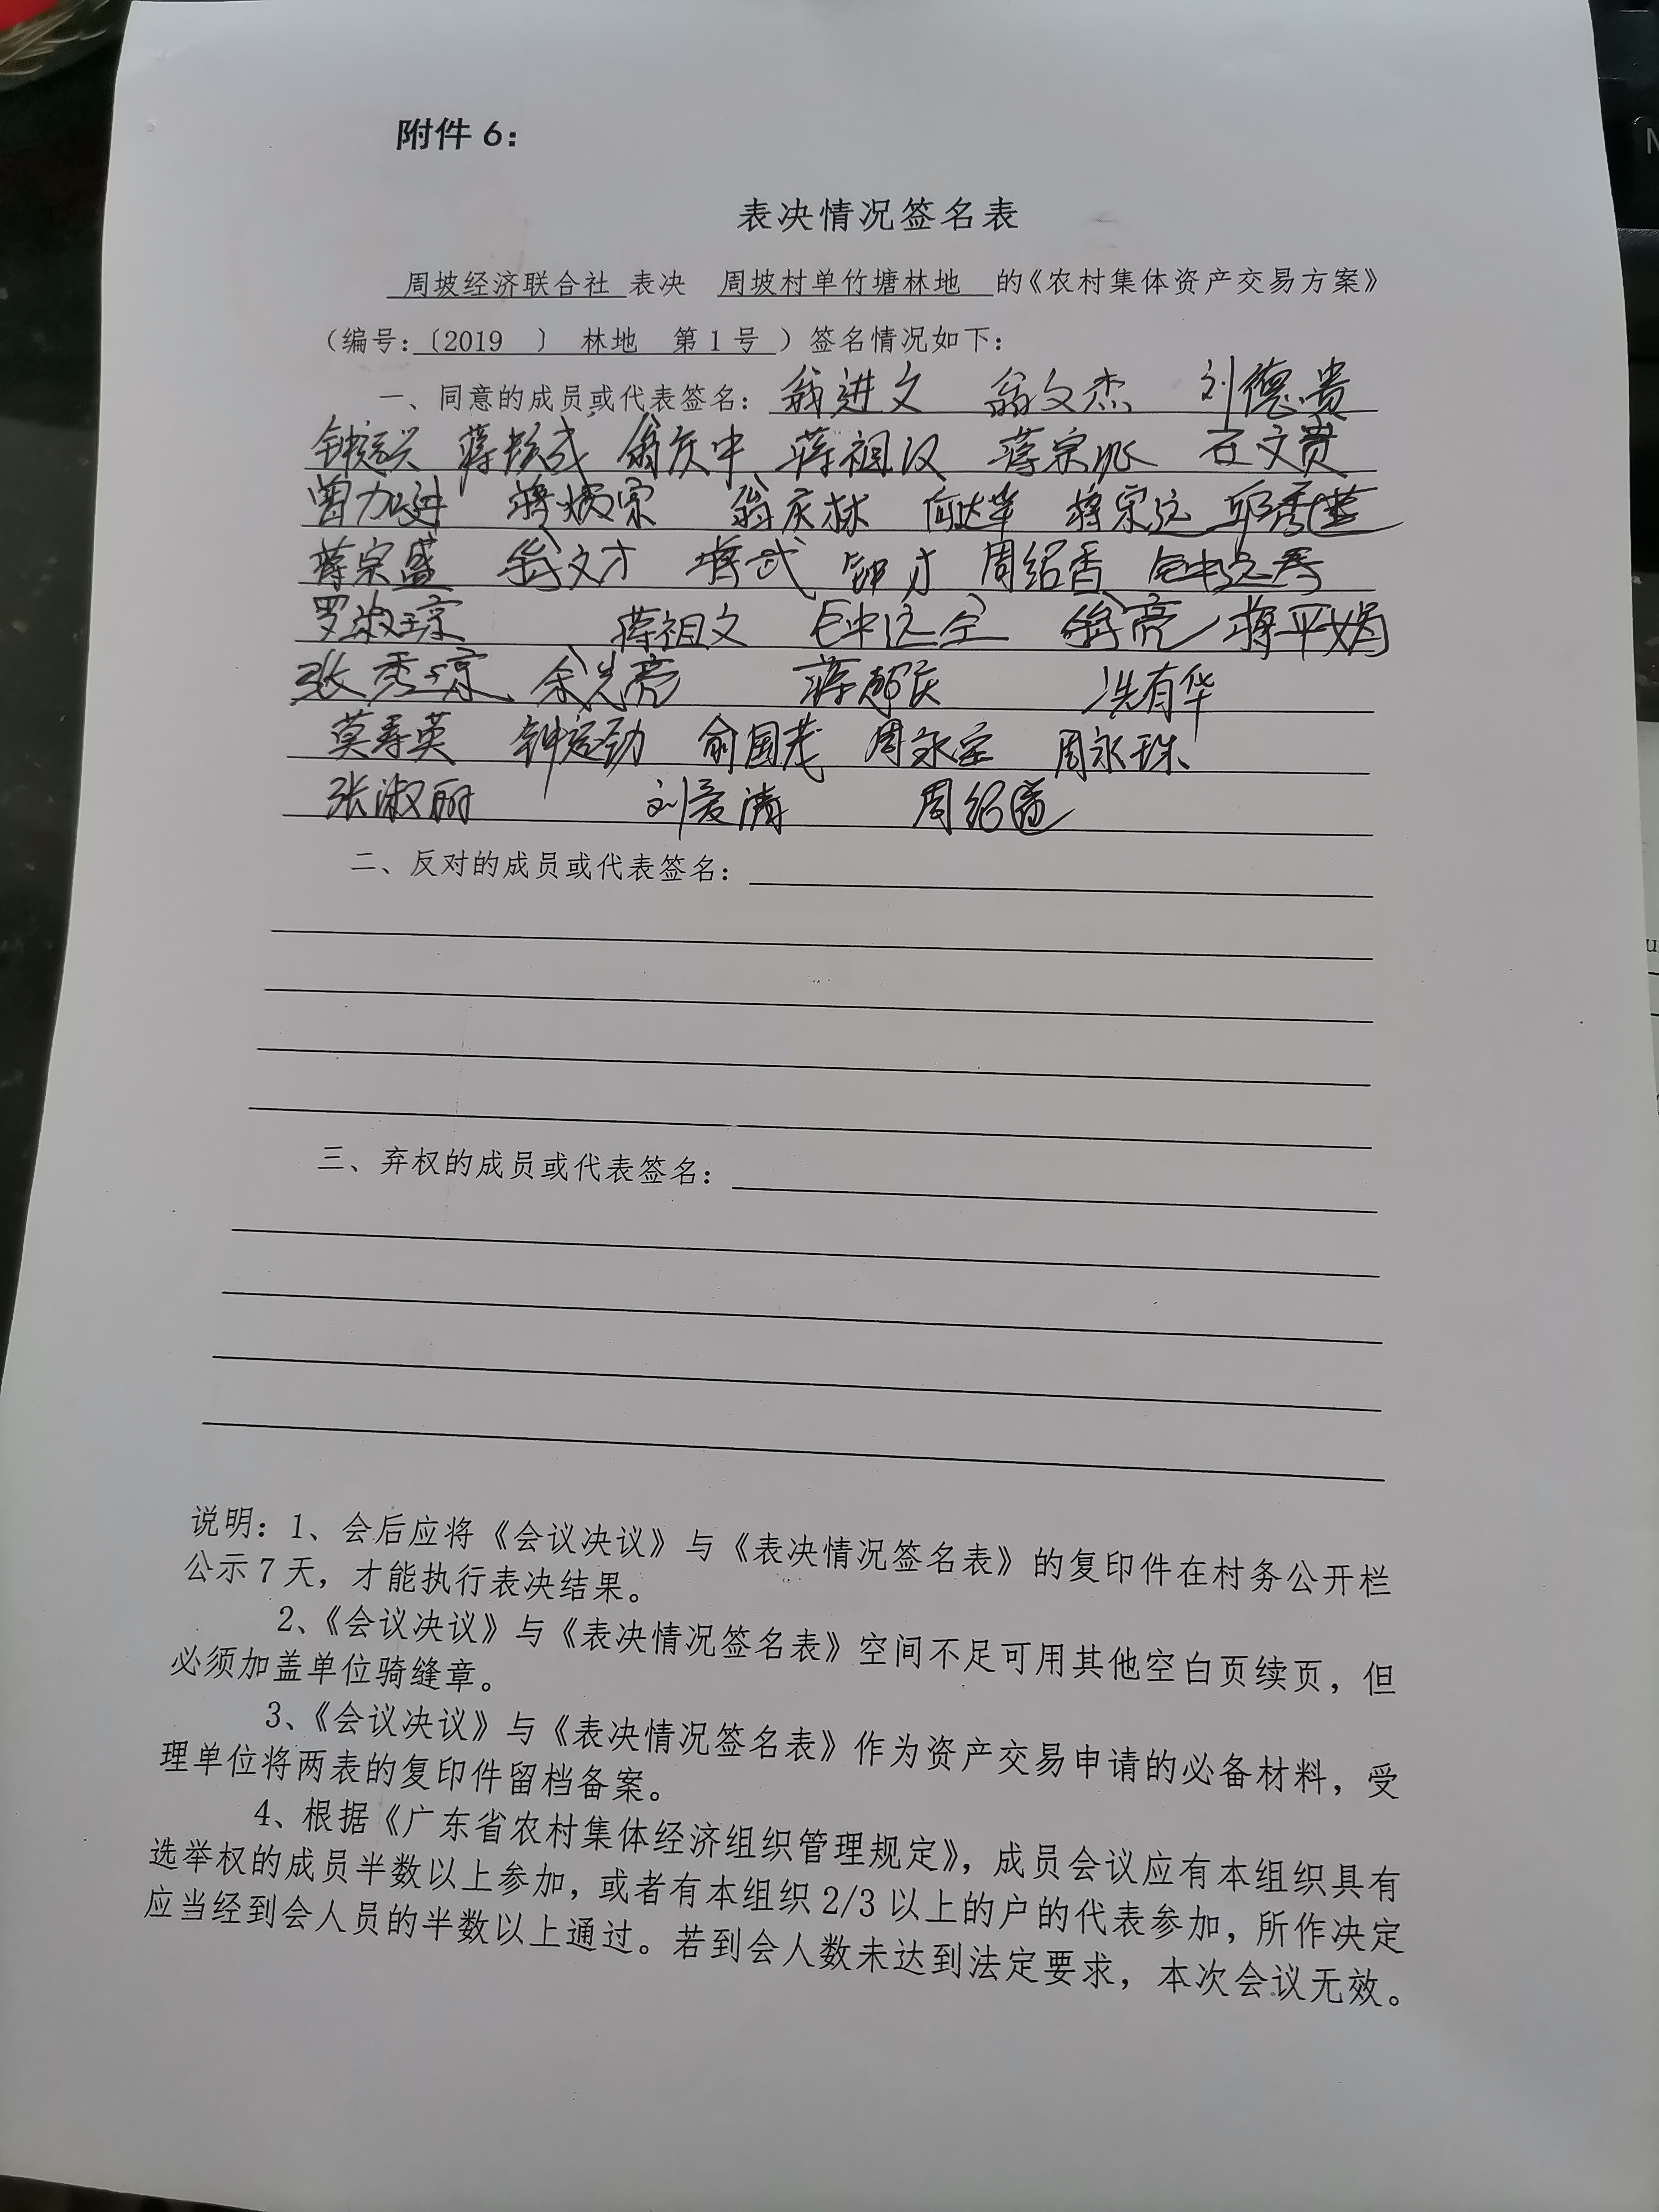 附件 6：
表决情况签名表
周坡经济联合社 表决 周坡村单竹塘林地 的《农村集体资产交易方案》
（编号：〔2019 〕 林地 第 1 号 ）签名情况如下：
一、同意的成员或代表签名： 翁进文 翁文杰 刘德贵
钟运兴 翁庆中 蒋祖汉 蒋宗兆 石文贵
曾加进 蒋炳宗 翁庆林 何达华 蒋宗远 邱秀莲
蒋宗盛 翁文才 蒋武 钟才 周绍香 钟远寿
罗淑琼 蒋祖文 钟远全 翁亮 蒋平娟
张秀琼 余光亮 蒋超庆 冼有华
莫寿英 钟运劲 俞国茂 周永宝 周永珠
张淑丽 刘爱清 周绍
二、反对的成员或代表签名：
三、弃权的成员或代表签名：
说明：1、会后应将《会议决议》与《表决情况签名表》的复印件在村务公开栏
公示 7 天，才能执行表决结果。
2、《会议决议》与《表决情况签名表》空间不足可用其他空白页续页，但
必须加盖单位骑缝章。
3、《会议决议》与《表决情况签名表》作为资产交易申请的必备材料，受
理单位将两表的复印件留档备案。
4、根据《广东省农村集体经济组织管理规定》，成员会议应有本组织具有
选举权的成员半数以上参加，或者有本组织 2/3 以上的户的代表参加，所作决定
应当经到会人员的半数以上通过。若到会人数未达到法定要求，本次会议无效。